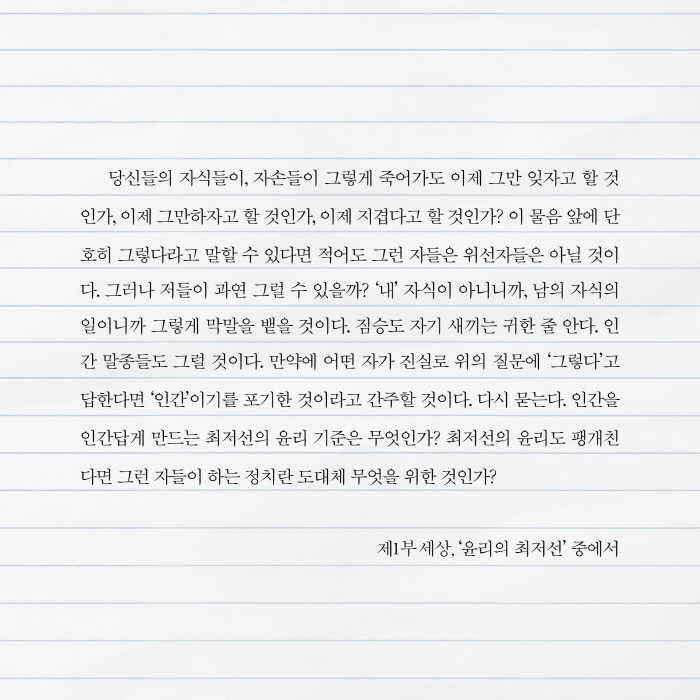 당신들의 자식들이, 자손들이 그렇게 죽어가도 이제 그만 잊자고 할 것
인가, 이제 그만하자고 할 것인가, 이제 지겹다고 할 것인가? 이 물음 앞에 단
호히 그렇다라고 말할 수 있다면 적어도 그런 자들은 위선자들은 아닐 것이
다. 그러나 저들이 과연 그럴 수 있을까? ‘내’ 자식이 아니니까, 남의 자식의
일이니까 그렇게 막말을 뱉을 것이다. 짐승도 자기 새끼는 귀한 줄 안다. 인
간 말종들도 그럴 것이다. 만약에 어떤 자가 진실로 위의 질문에 ‘그렇다’고
답한다면 ‘인간’이기를 포기한 것이라고 간주할 것이다. 다시 묻는다. 인간을
인간답게 만드는 최저선의 윤리 기준은 무엇인가? 최저선의 윤리도 팽개친
다면 그런 자들이 하는 정치란 도대체 무엇을 위한 것인가?
제1부 세상, ‘윤리의 최저선’ 중에서